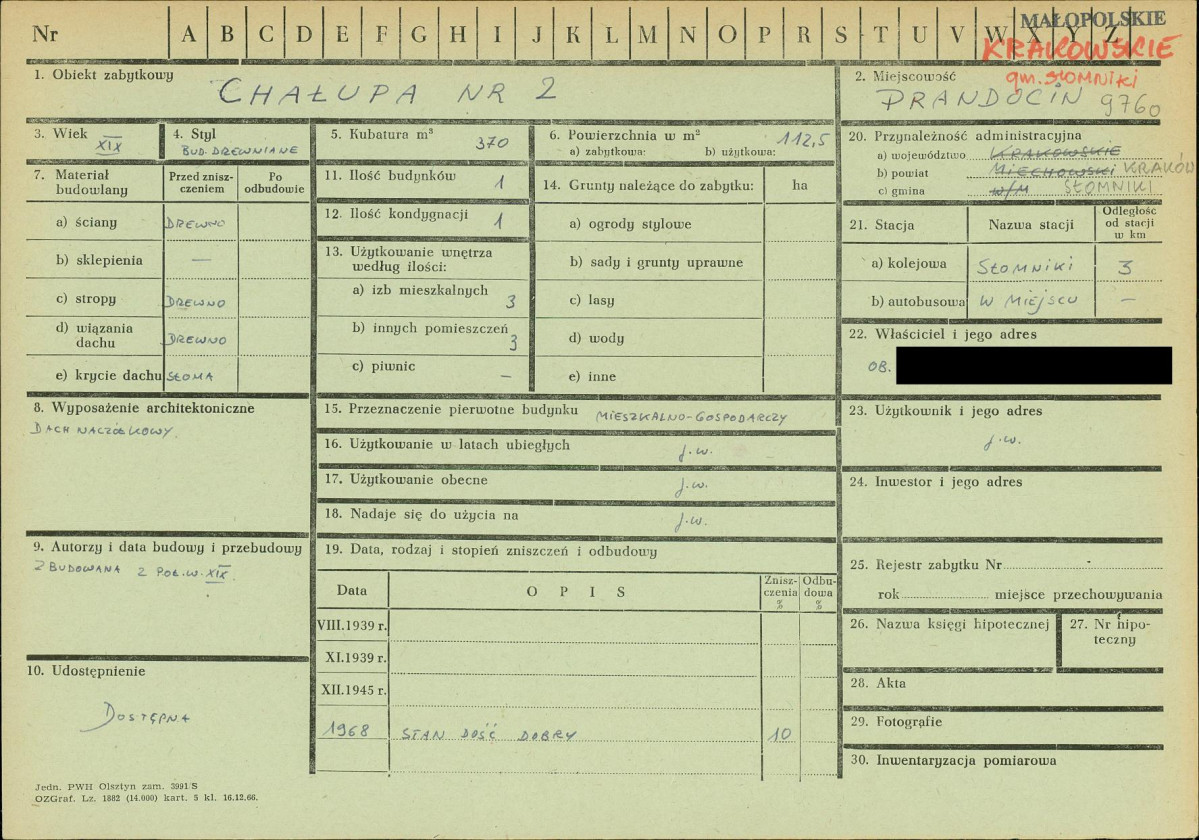 Nr A B C D E F G H I J K L M N O P R S T U V W X Y Z
MAŁOPOLSKIE
KRAKOWSKIE
gm. SŁOMNIKI
1. Obiekt zabytkowy
CHAŁUPA NR 2
2. Miejscowość
PRANDOCIN 9760
3. Wiek
XIX
4. Styl
BUD. DREWNIANE
5. Kubatura m³
370
6. Powierzchnia w m²
112,5
a) zabytkowa: b) użytkowa:
7. Materiał budowlany
Przed zniszczeniem
Po odbudowie
a) ściany DREWNO
b) sklepienia —
c) stropy DREWNO
d) wiązania dachu DREWNO
e) krycie dachu SŁOMA
8. Wyposażenie architektoniczne
DACH NACZÓŁKOWY
9. Autorzy i data budowy i przebudowy
ZBUDOWANA 2 POŁ. W. XIX.
10. Udostępnienie
DOSTĘPNA
11. Ilość budynków
1
12. Ilość kondygnacji
1
13. Użytkowanie wnętrza według ilości:
a) izb mieszkalnych
3
b) innych pomieszczeń
3
c) piwnic
—
14. Grunty należące do zabytku: ha
a) ogrody stylowe
b) sady i grunty uprawne
c) lasy
d) wody
e) inne
15. Przeznaczenie pierwotne budynku MIESZKALNO-GOSPODARCZY
16. Użytkowanie w latach ubiegłych j.w.
17. Użytkowanie obecne j.w.
18. Nadaje się do użycia na j.w.
19. Data, rodzaj i stopień zniszczeń i odbudowy
Data OPIS Zniszczenia % Odbudowa %
VIII.1939 r.
XI.1939 r.
XII.1945 r.
1968 STAN DOŚĆ DOBRY 10
20. Przynależność administracyjna
a) województwo KRAKOWSKIE
b) powiat MIECHOWSKI KRAKÓW
c) gmina w/m SŁOMNIKI
21. Stacja Nazwa stacji Odległość od stacji w km
a) kolejowa SŁOMNIKI 3
b) autobusowa W MIEJSCU —
22. Właściciel i jego adres
OB.
23. Użytkownik i jego adres
j.w.
24. Inwestor i jego adres
25. Rejestr zabytku Nr
rok miejsce przechowywania
26. Nazwa księgi hipotecznej
27. Nr hipoteczny
28. Akta
29. Fotografie
30. Inwentaryzacja pomiarowa
Jedn. PWH Olsztyn zam. 3991/S
OZGraf. Lz. 1882 (14.000) kart. 5 kl. 16.12.66.